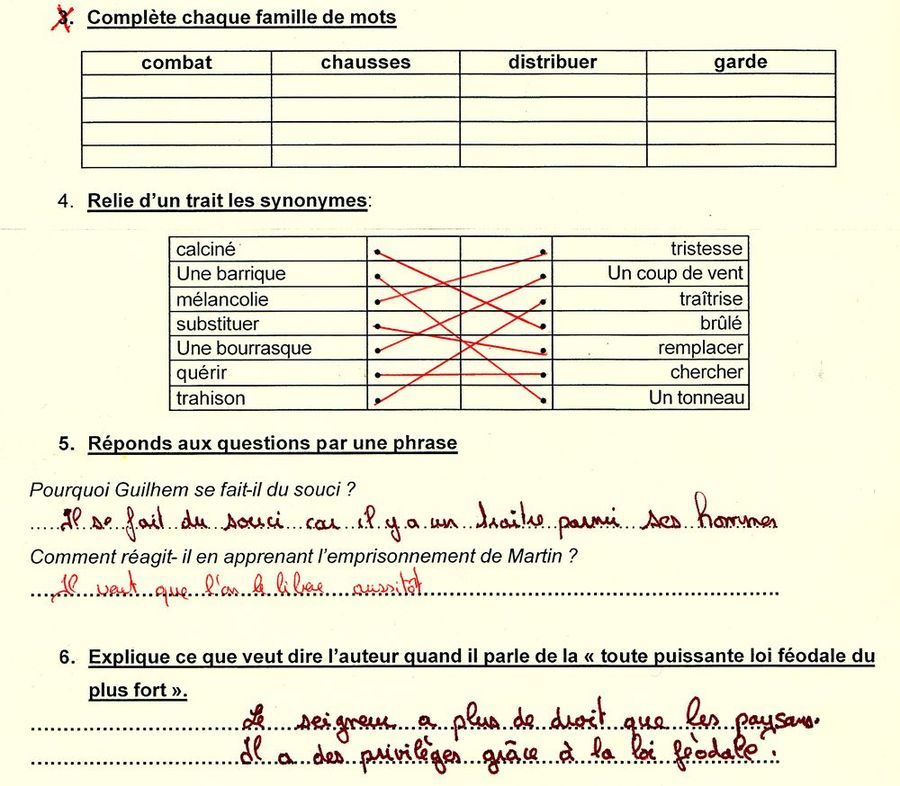 3. Complète chaque famille de mots
combat chausses distribuer garde
4. Relie d'un trait les synonymes:
calciné tristesse
Une barrique Un coup de vent
mélancolie traîtrise
substituer brûlé
Une bourrasque remplacer
quérir chercher
trahison Un tonneau
5. Réponds aux questions par une phrase
Pourquoi Guilhem se fait-il du souci ?
Il se fait du souci car il y a un traître parmi ses hommes
Comment réagit- il en apprenant l'emprisonnement de Martin ?
Il veut que l'on le libère aussitôt
6. Explique ce que veut dire l'auteur quand il parle de la « toute puissante loi féodale du
plus fort ».
Le seigneur a plus de droit que les paysans.
Il a des privilèges grâce à la loi féodale.